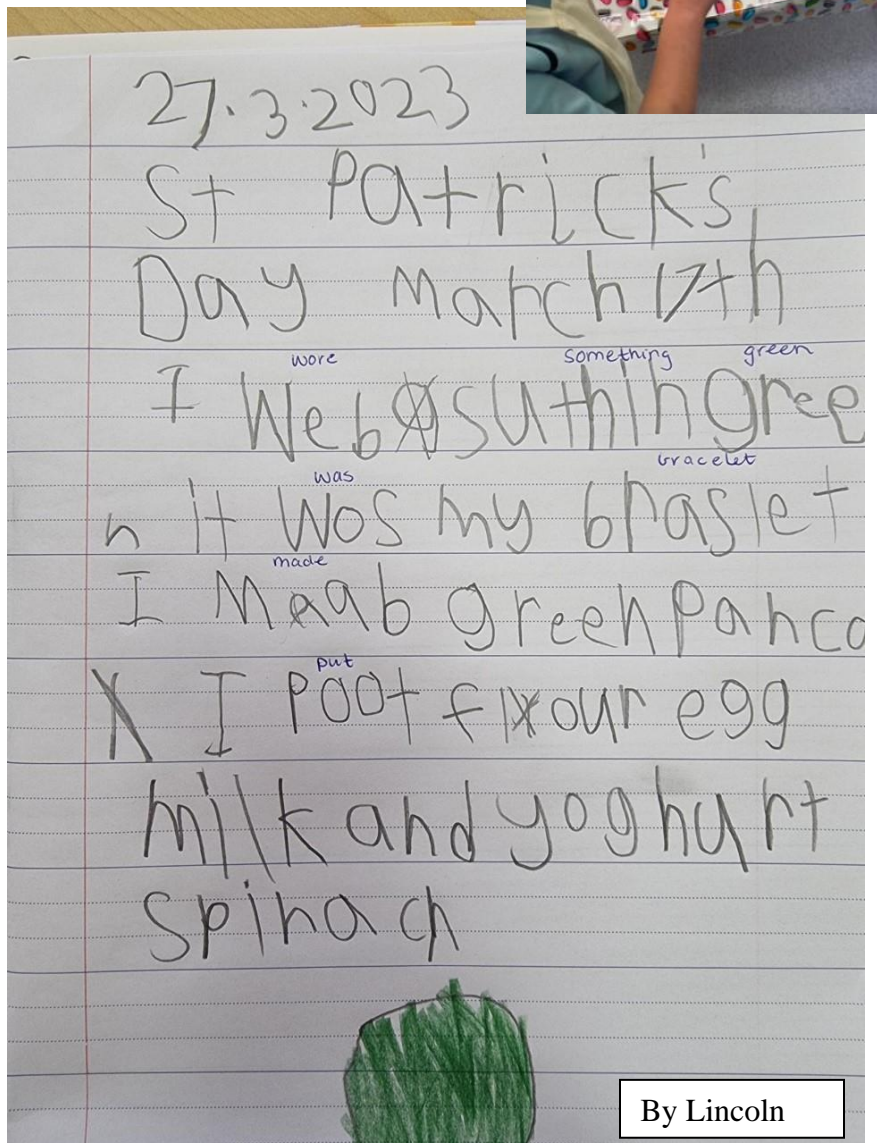 27.3.2023
St Patrick's
Day March 17th
wore something green
I Web suthin gree
was bracelet
n it wos my braslet
made
I Maab green panca
put
X I poot flour egg
milk and yoghurt
spinach
By Lincoln